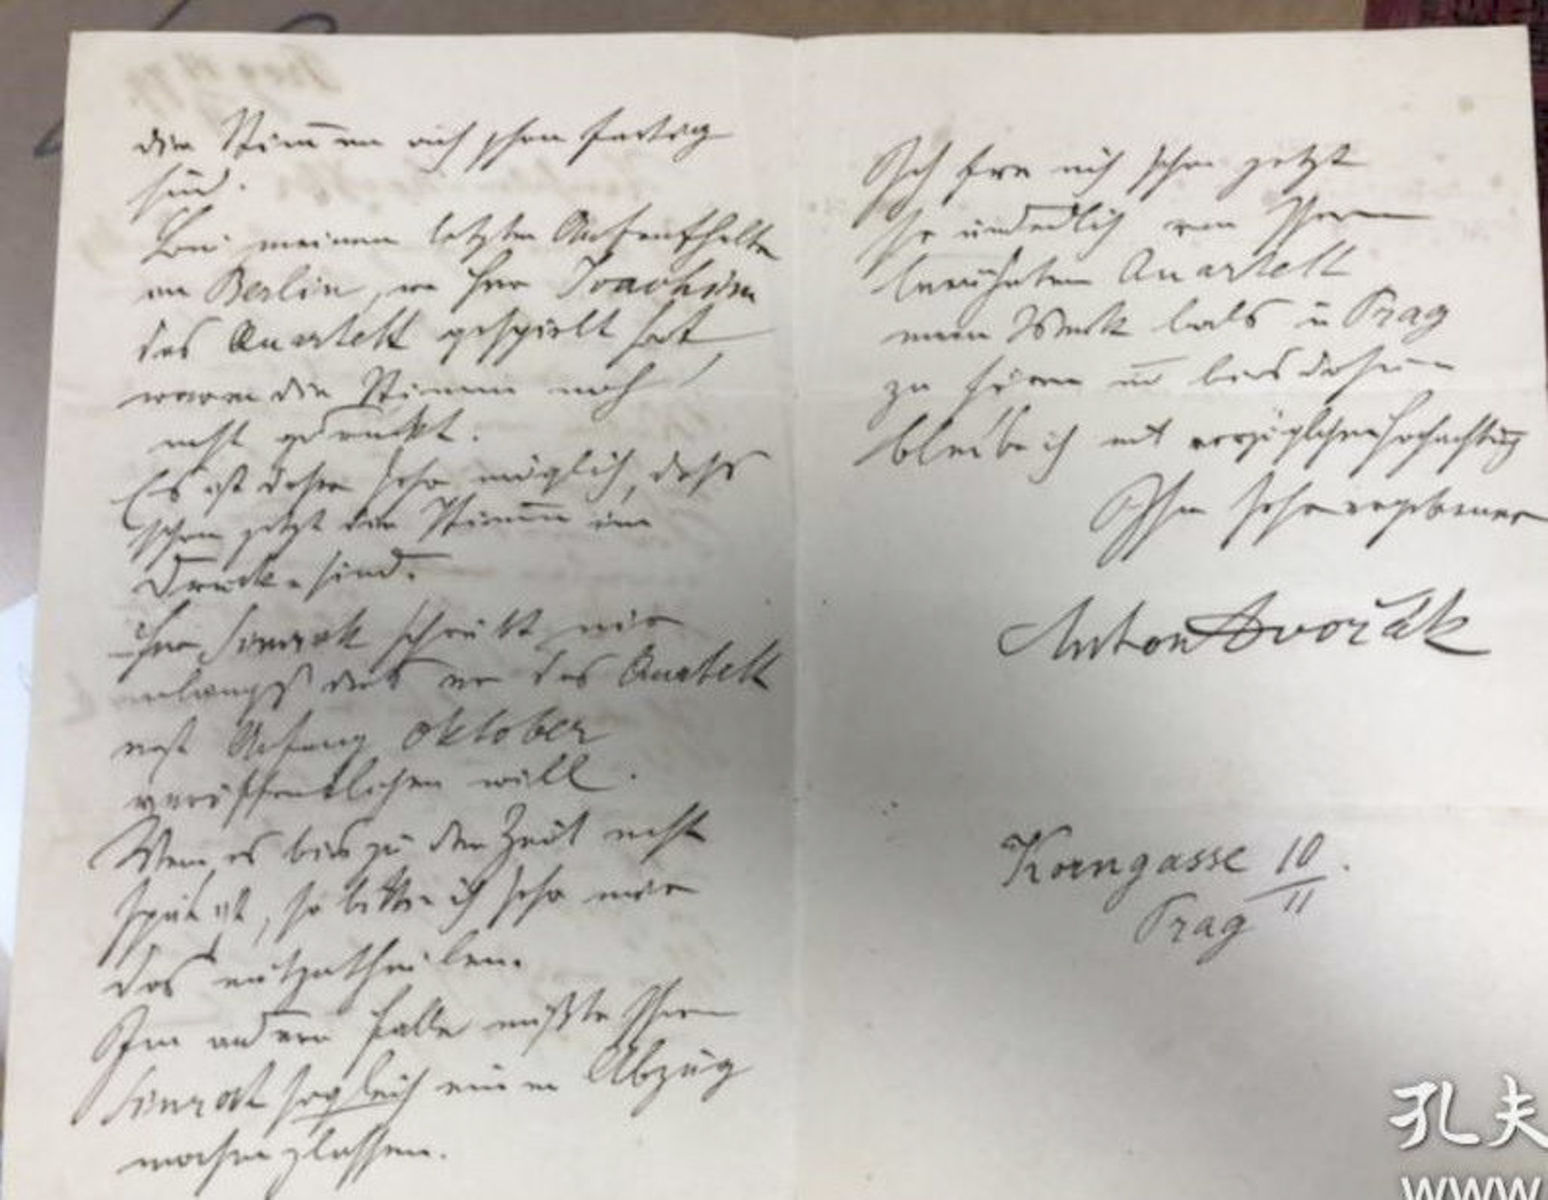 die Stimmen auch schon fertig
sind.
Bei meinem letzten Aufenthalte
in Berlin, wo Herr Joachim
das Quartett gespielt hat,
waren die Stimmen noch
nicht gedruckt.
Es ist daher sehr möglich, dass
schon jetzt die Stimmen im
Drucke sind.
Herr Simrok schreibt mir
unlängst das er das Quartett
erst Anfang Oktober
veröffentlichen will.
Wenn es bis zu der Zeit nicht
spät ist, so bitte ich sehr mir
das mitzutheilen.
Im andern Falle müßte Ihnen
Simrok sogleich einen Abzug
machen lassen.
Ich freu mich schon jetzt
so unendlich von Ihrem
berühmten Quartett
mein Werk bald in Prag
zu hören und bis dahin
bleibe ich mit vorzüglicher Hochachtung
Ihr sehr ergebener
Anton Dvořák
Korngasse 10
Prag II
孔夫
www